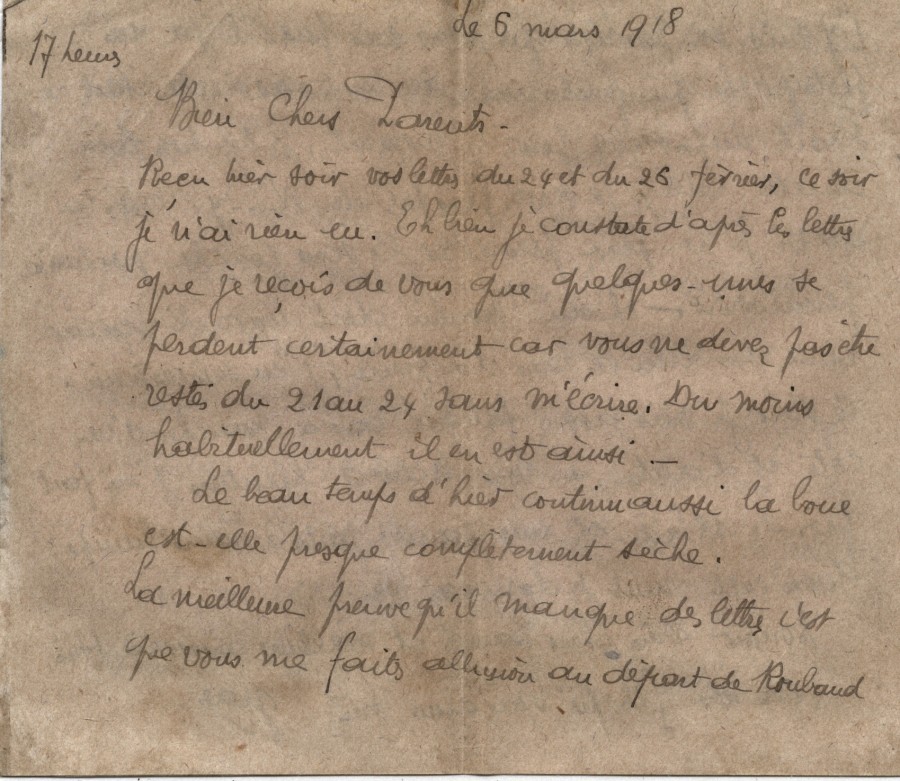 Le 6 mars 1918
17 heures
Bien Chers Parents -
Recu hier soir vos lettres du 24 et du 26 février, ce soir
je n'ai rien eu. Eh bien je constate d'après les lettres
que je reçois de vous que quelques-unes se
perdent certainement car vous ne devez pas être
restés du 21 au 24 sans m'écrire. Du moins
habituellement il en est ainsi -
Le beau temps d'hier continu aussi la boue
est-elle presque complètement sèche.
La meilleure preuve qu'il manque des lettres c'est
que vous me faites allusion au départ de Roubaud